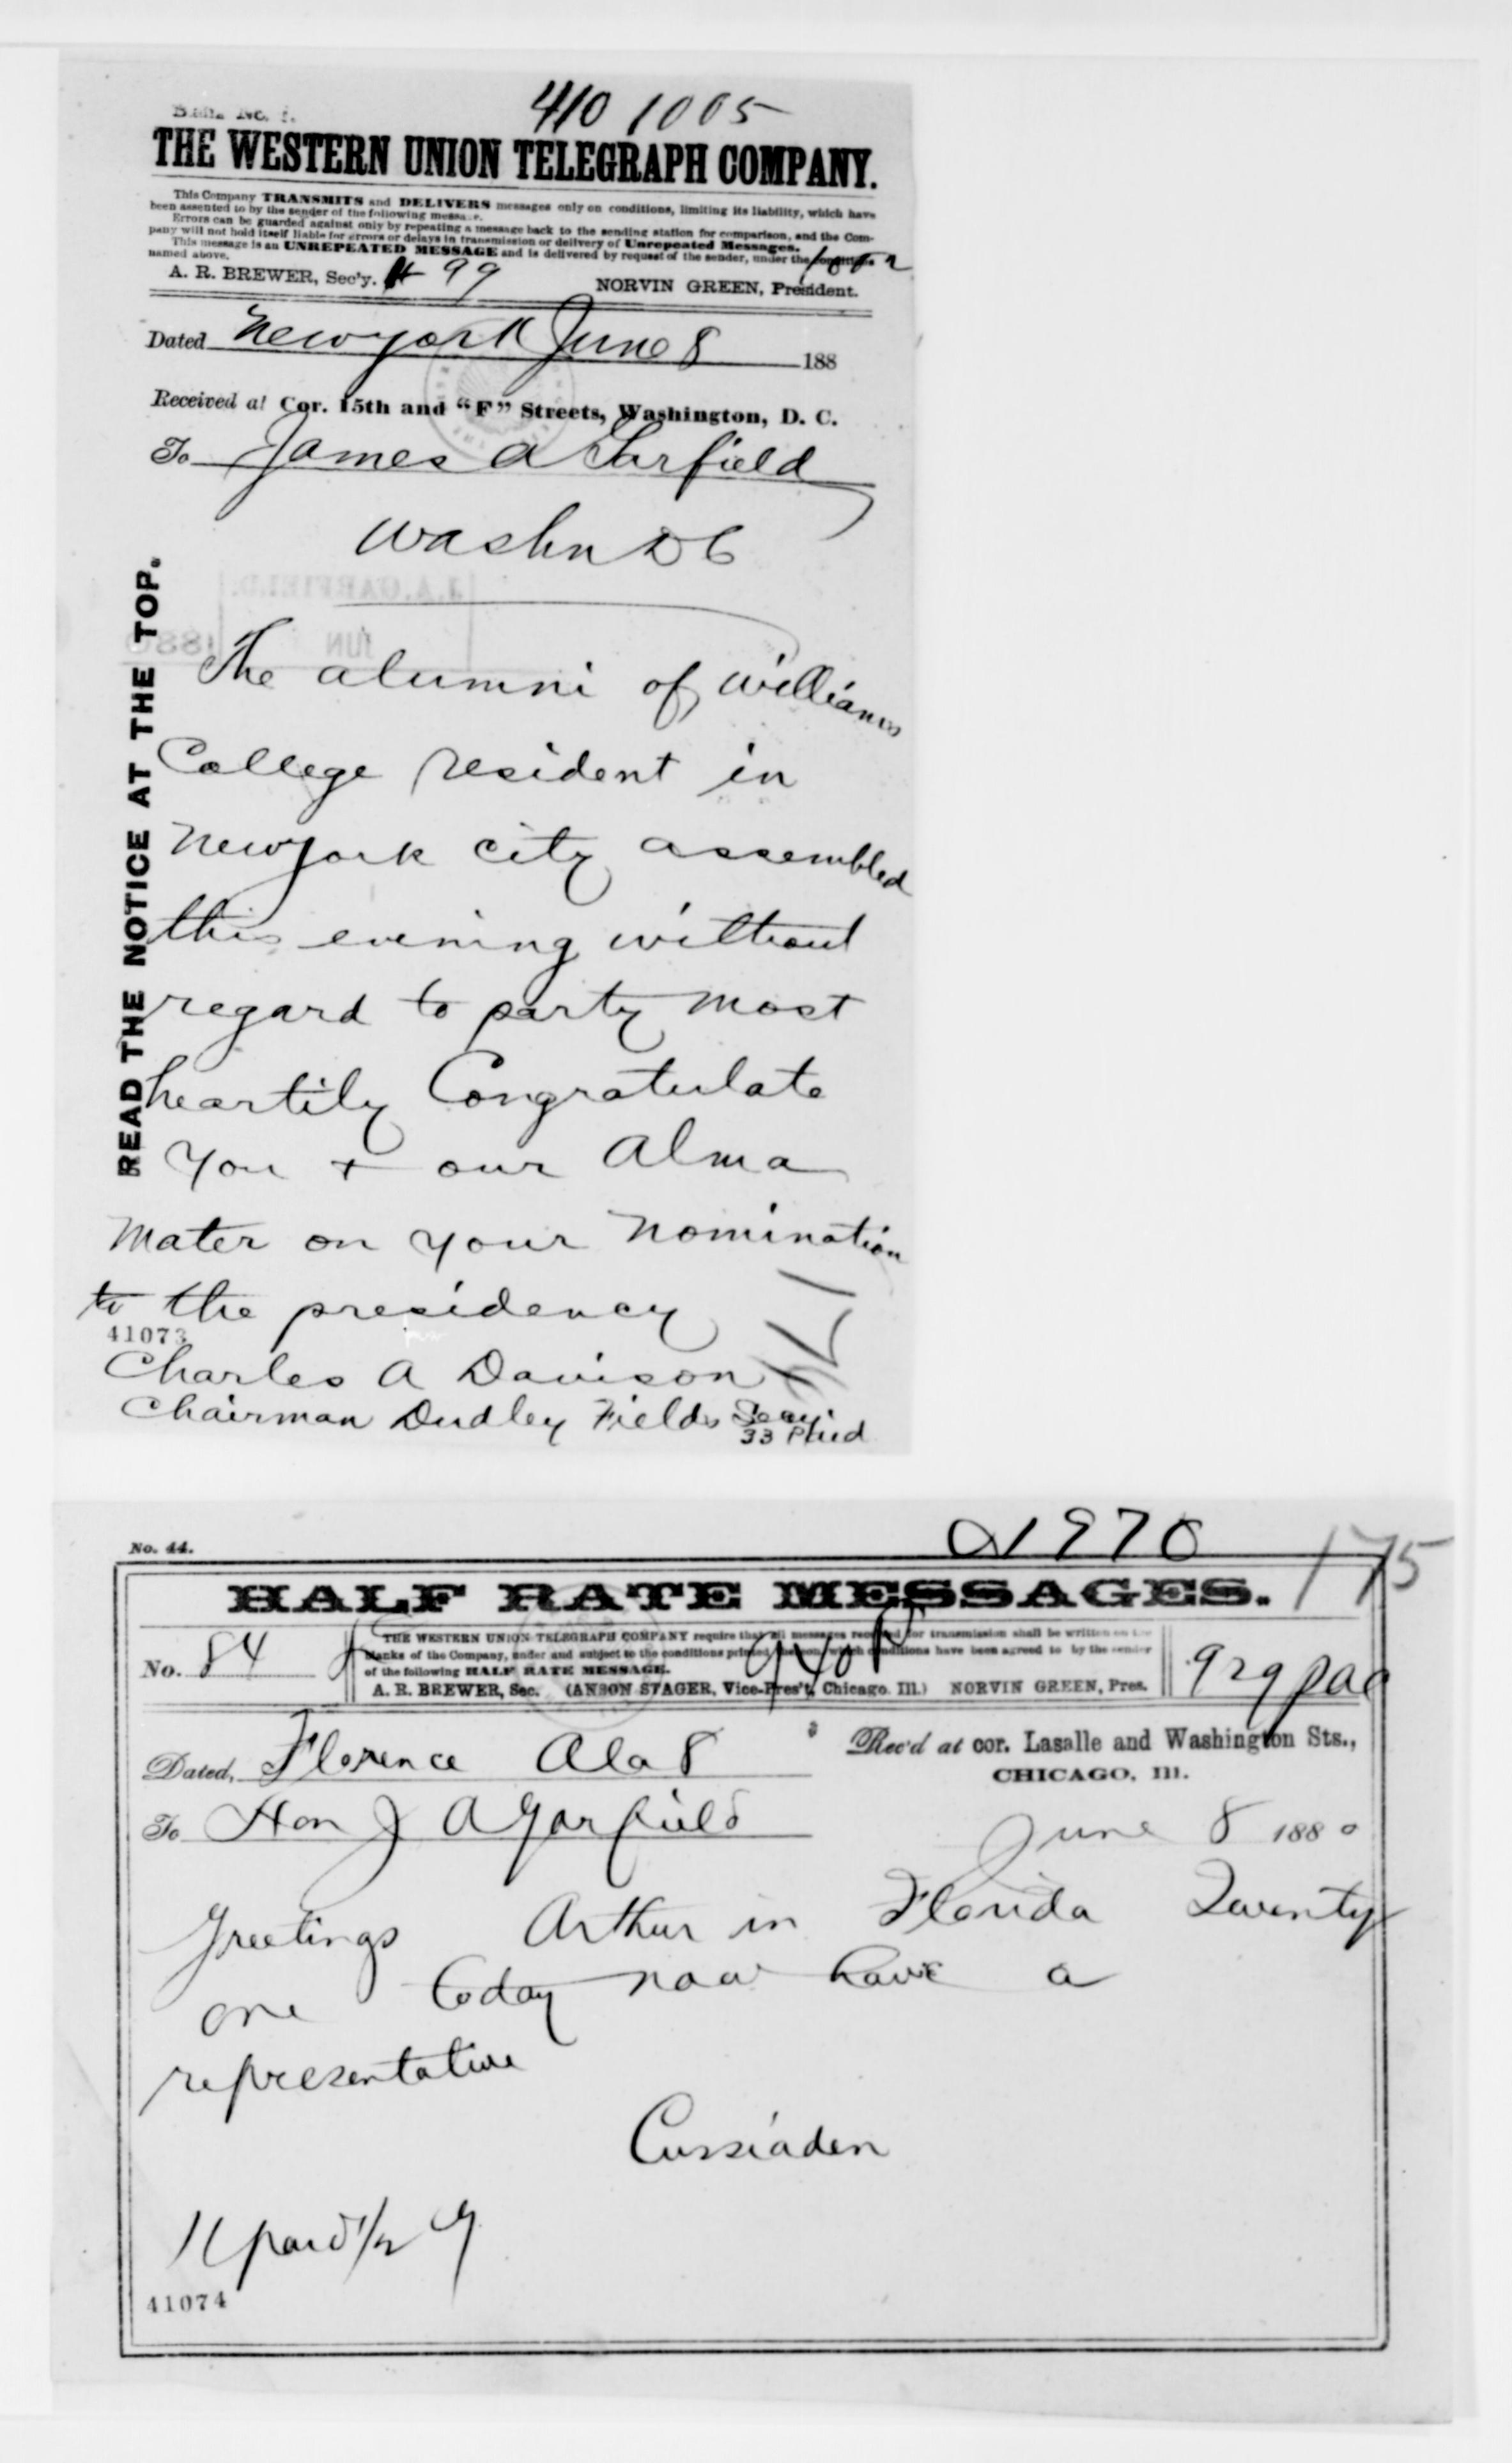 410 1005
THE WESTERN UNION TELEGRAPH COMPANY.
This Company TRANSMITS and DELIVERS messages only on conditions, limiting its liability, which have
been assented to by the sender of the following message.
Errors can be guarded against only by repeating a message back to the sending station for comparison, and the Com-
pany will not hold itself liable for errors or delays in transmission or delivery of Unrepeated Messages.
This message is an UNREPEATED MESSAGE and is delivered by request of the sender, under the conditions
named above.
A. R. BREWER, Sec'y. 99 NORVIN GREEN, President.
Dated New york June 8 188
Received at Cor. 15th and "F" Streets, Washington, D. C.
To James A Garfield
Washn DC
J.A. GARFIELD.
JUN 1880
READ THE NOTICE AT THE TOP.
The alumni of Williams
College resident in
New york city assembled
this evening without
regard to party most
heartily Congratulate
you + our Alma
Mater on your nomination
to the presidency
41073
Charles A Davison
Chairman Dudley Fields Secy.
33 Phid
a1970
175
No. 44.
HALF RATE MESSAGES.
No. 84
THE WESTERN UNION TELEGRAPH COMPANY require that all messages received for transmission shall be written on the
blanks of the Company, under and subject to the conditions printed thereon, which conditions have been agreed to by the sender
of the following HALF RATE MESSAGE.
A. R. BREWER, Sec. (ANSON STAGER, Vice-Pres't, Chicago. Ill.) NORVIN GREEN, Pres.
Dated, Florence Ala 8
Rec'd at cor. Lasalle and Washington Sts.,
CHICAGO, Ill.
To Hon J A Garfield
June 8 1880
Greetings Arthur in Florida Twenty
one today now have a
representative
Cussiaden
11 paid 1/2
41074